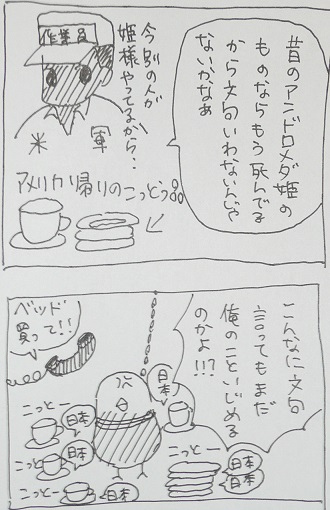 昔のアンドロメダ姫の
ものならもう死んでる
から文句いわないんじゃ
ないかなぁ
作業員
今別の人が
姫様やってるから‥
米 軍
アメリカ帰りのこっとう品
こんなに文句
言ってもまだ
俺のこといじめる
のかよ!!?
ベッド
買って!!
日本
こっとー
日本
こっとー
日本
こっとー
日本
こっとー
日本
日本